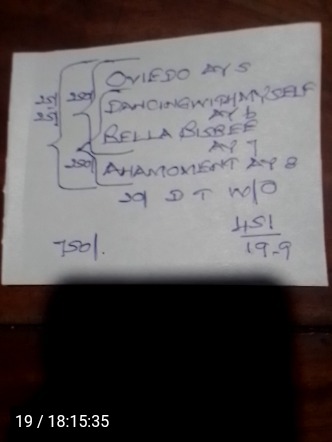 OVIEDO AY 5
DANCINGWITHMYSELF
AY 6
BELLA BISBEE
AY 7
AHAMOMENT AY 8
20/ D T W/O
451
750/. 19-9
19 / 18:15:35